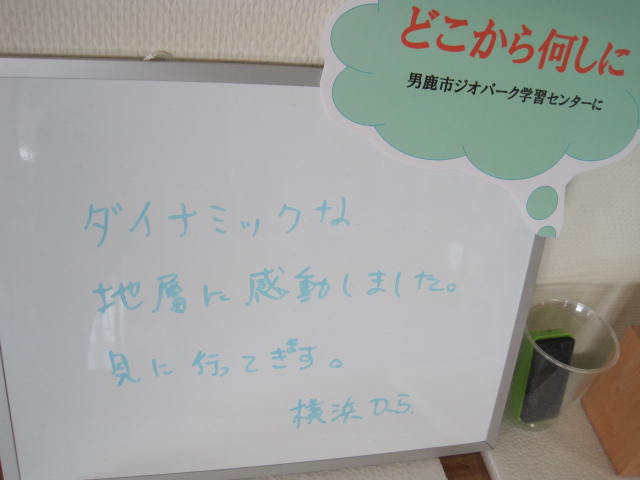 どこから何しに
男鹿市ジオパーク学習センターに
ダイナミックな
地層に感動しました。
見に行ってきます。
横浜から